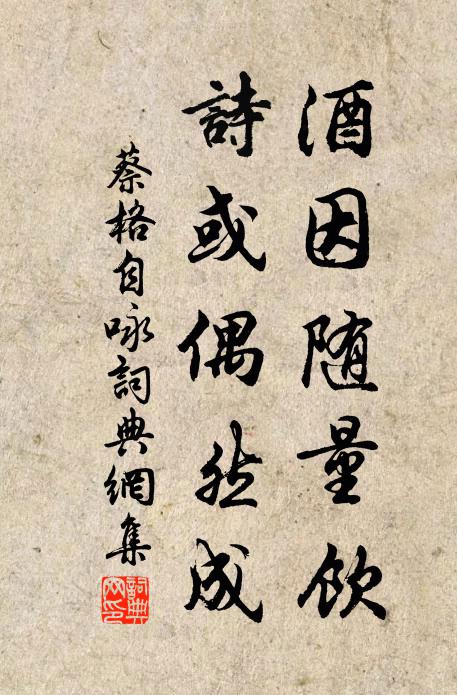 酒因随量飲
詩或偶然成
蔡格自咏詞典網集
詞典網印